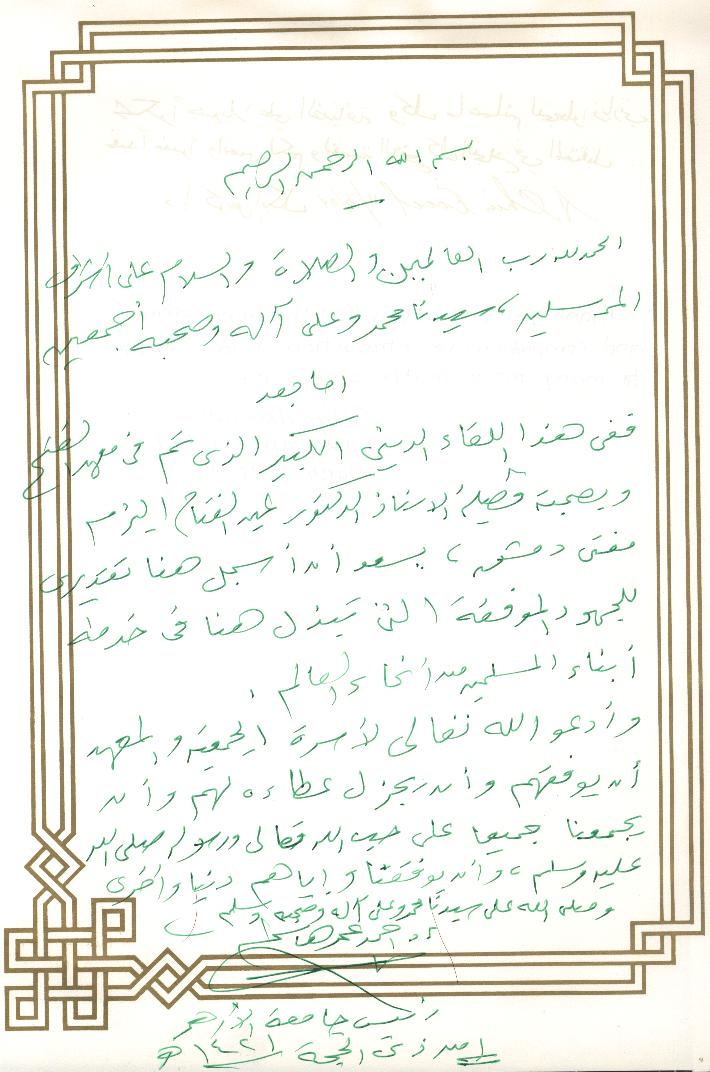 بسم الله الرحمن الرحيم
الحمد لله رب العالمين والصلاة والسلام على أشرف
المرسلين، سيدنا محمد وعلى آله وصحبه أجمعين
اما بعد
ففى هذا اللقاء الدينى الكبير الذى تم فى معهد الفتح
وبصحبة فضيلة الاستاذ الدكتور عبد الفتاح البزم
مفتى دمشق، يسعدنى أن أسجل هنا تقديرى
للجهود الموفقة التى تبذل هنا فى خدمة
أبناء المسلمين من أنحاء العالم.
وأدعو الله تعالى لأسرة الجمعية والمعهد
أن يوفقهم وأن يجزل عطاءه لهم وأن
يجمعنا جميعا على حب الله تعالى ورسوله صلى الله
عليه وسلم، وأن يوفقنا وإياهم دنيا وأخرى
وصلى الله على سيدنا محمد وعلى آله وصحبه وسلم
أ.د. احمد عمر هاشم
رئيس جامعة الأزهر
من ذى الحجة ١٤٢١ هـ